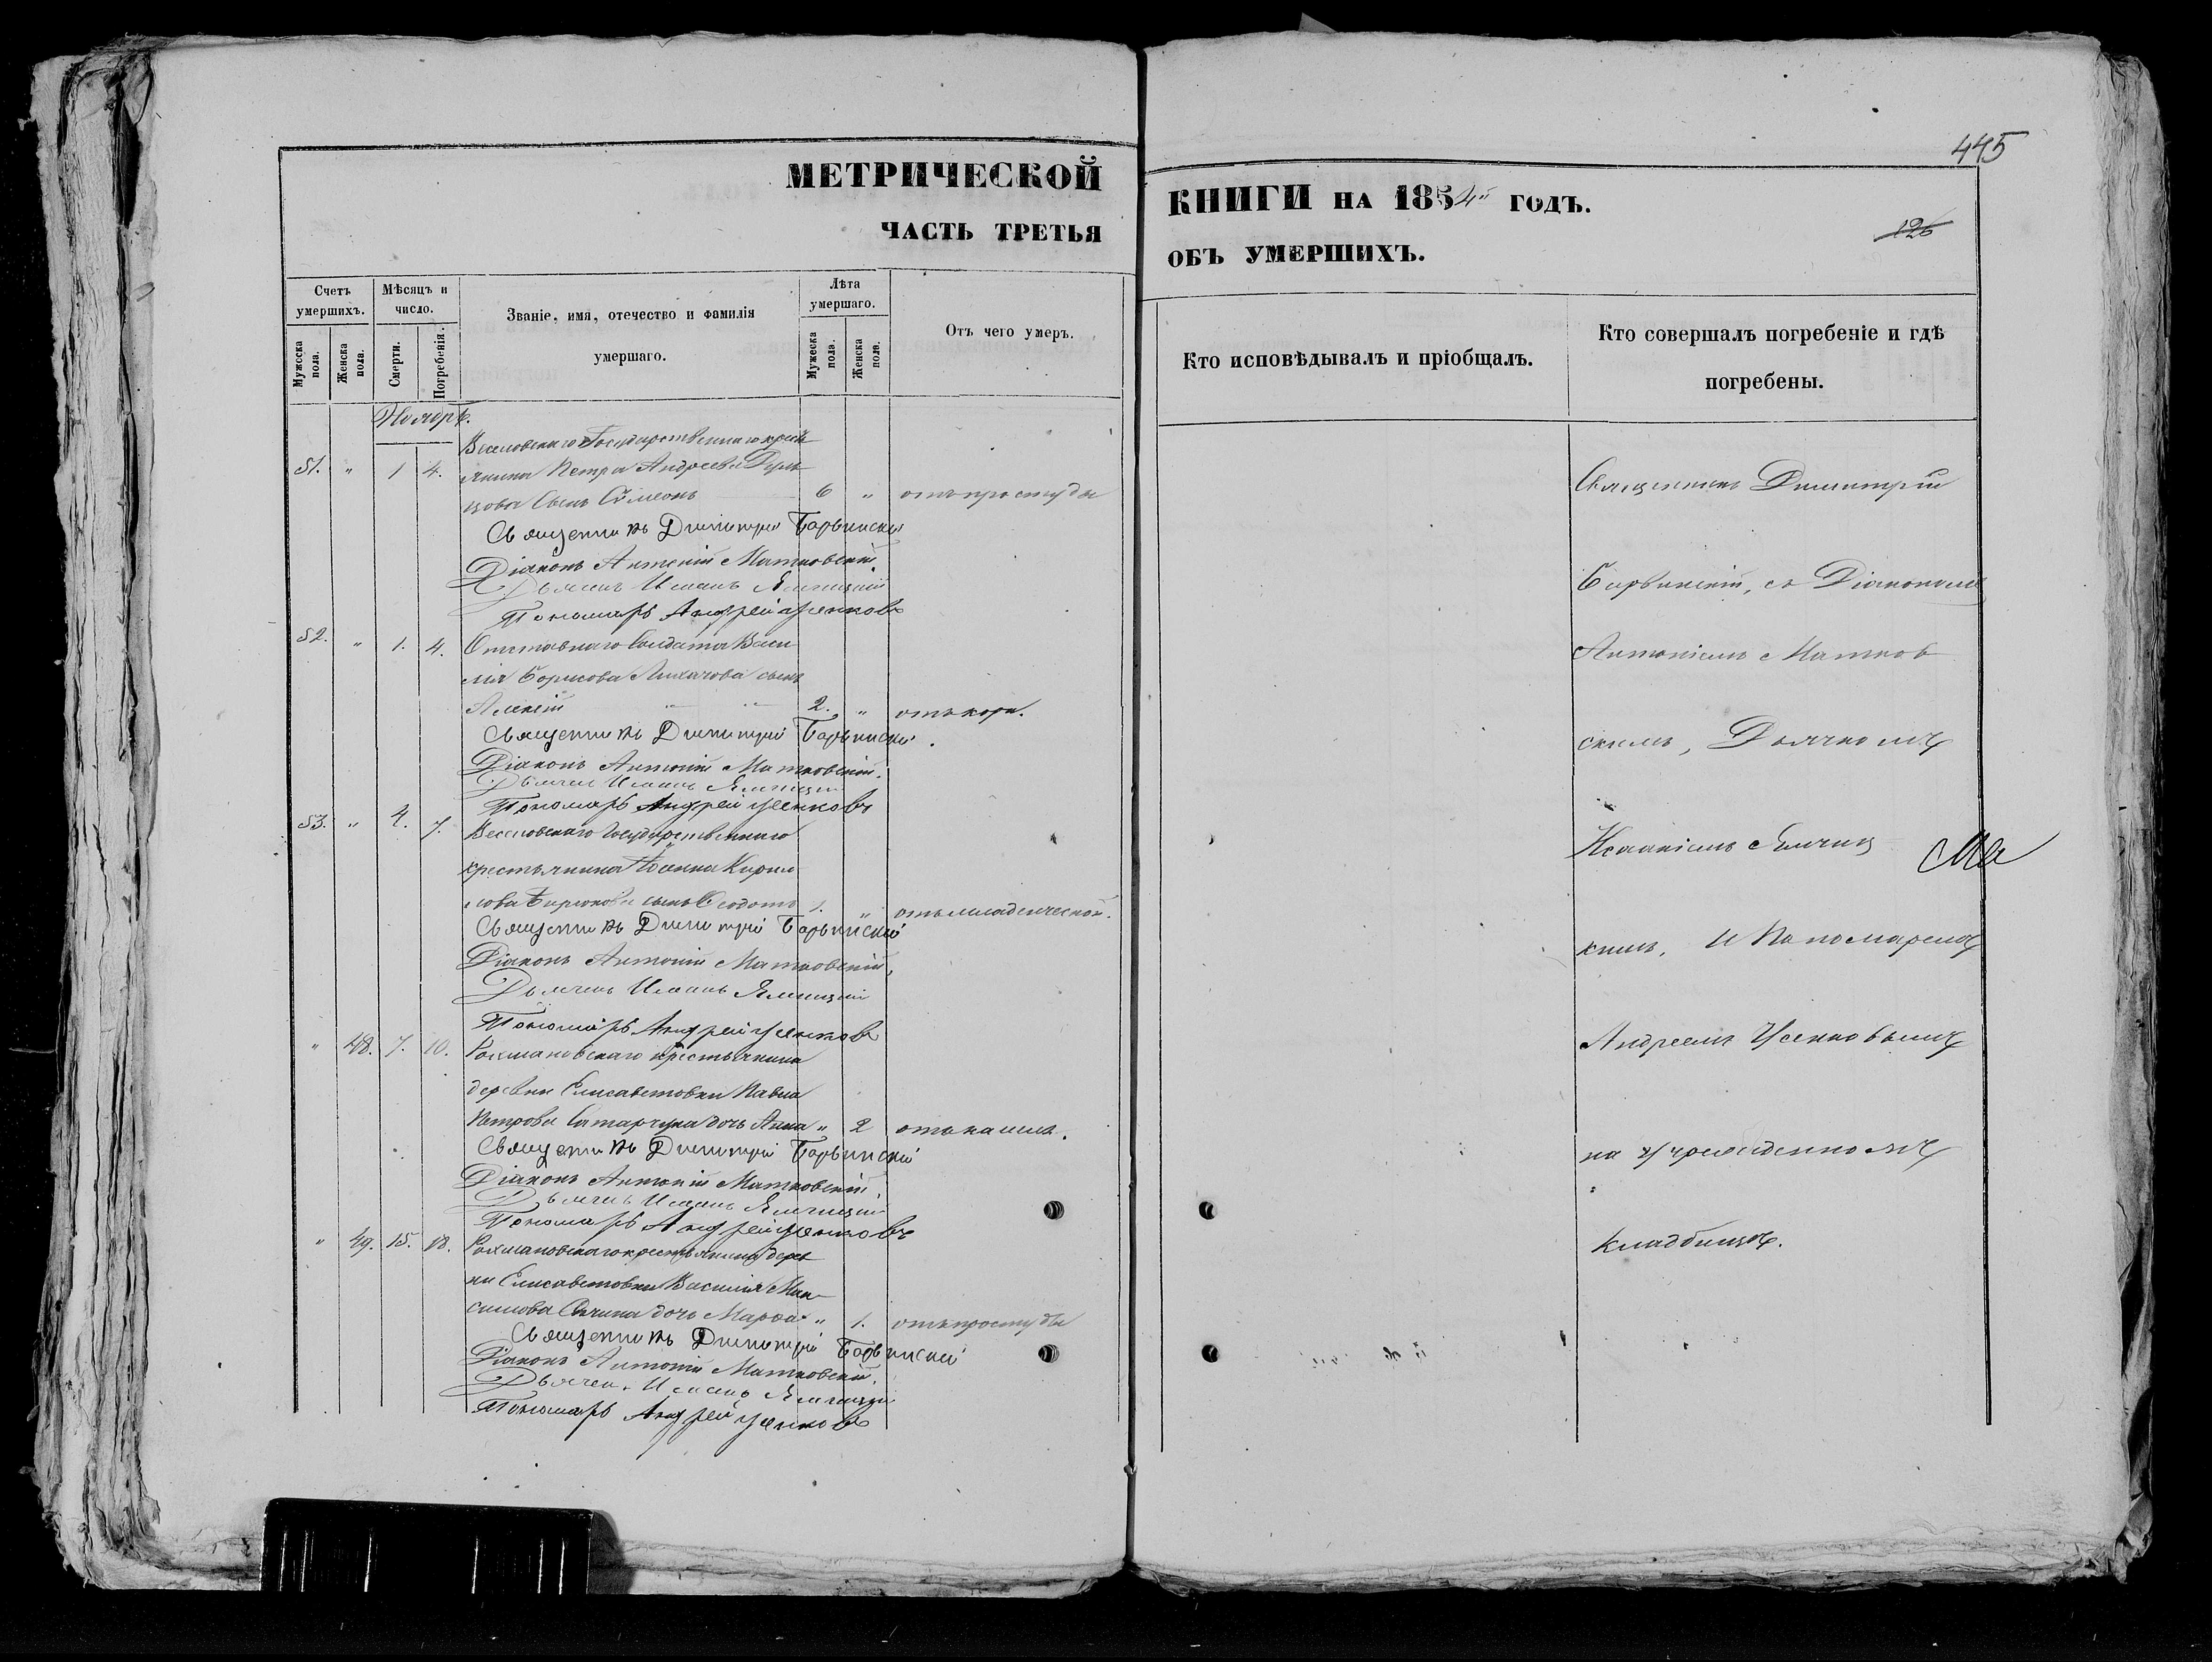 445
МЕТРИЧЕСКОЙ
КНИГИ НА 1854й ГОДЪ.
126
ЧАСТЬ ТРЕТЬЯ
ОБЪ УМЕРШИХЪ.
Счетъ умершихъ.
Мѣсяцъ и число.
Званіе, имя, отечество и фамилія умершаго.
Лѣта умершаго.
Отъ чего умеръ.
Кто исповѣдывалъ и пріобщалъ.
Кто совершалъ погребеніе и гдѣ погребены.
Мужеска пола.
Женска пола.
Смерти.
Погребенія.
Мужеска пола.
Женска пола.
Ноябрь.
Веселовскаго Государственнаго крестъ
51. " 1 4. янина Петра Андреева
цова сынъ Симеонъ 6 " отъ простуды
Священникъ Димитрій Барвинскій
Діаконъ Антоній Матковскій.
Дьячекъ Иоаннъ Ямницкій
Пономарь Андрей Усенковъ
52. " 1. 4. Отставнаго Солдата Васи
лія Борисова Лихачова сынъ
Алексій 2. " отъ кори.
Священникъ Димитрій Барвинскій.
Діаконъ Антоній Матковскій.
Дьячекъ Иоаннъ Ямницкій
Пономарь Андрей Усенковъ
53. " 4. 7. Веселовскаго Государственнаго
крестьянина Іоанна Кирил
лова Бирюкова сынъ Феодотъ 1. " отъ младенческой.
Священникъ Димитрій Барвинскій
Діаконъ Антоній Матковскій,
Дьячекъ Иоаннъ Ямницкій
Пономарь Андрей Усенковъ
" 48. 7. 10. Рохмановскаго крестьянина
деревни Елисаветовки Павла
Петрова дочь Анна " 2 отъ кашля.
Священникъ Димитрій Барвинскій
Діаконъ Антоній Матковскій.
Дьячекъ Иоаннъ Ямницкій
Пономарь Андрей Усенковъ
" 49. 15. 18. Рохмановскаго крестьянина дерев
ни Елисаветовки Василія Мак
симова дочь Марѳа " 1. отъ простуды
Священникъ Димитрій Барвинскій
Діаконъ Антоній Матковскій.
Дьячекъ Иоаннъ Ямницкій
Пономарь Андрей Усенковъ
Священникъ Димитрій
Барвинскій, съ Діакономъ
Антоніемъ Матков
скимъ, Дьячкомъ
Иоанномъ Ямниц
кимъ, и Пономаремъ
Андреемъ Усенковымъ
на учрежденномъ
кладбищѣ.